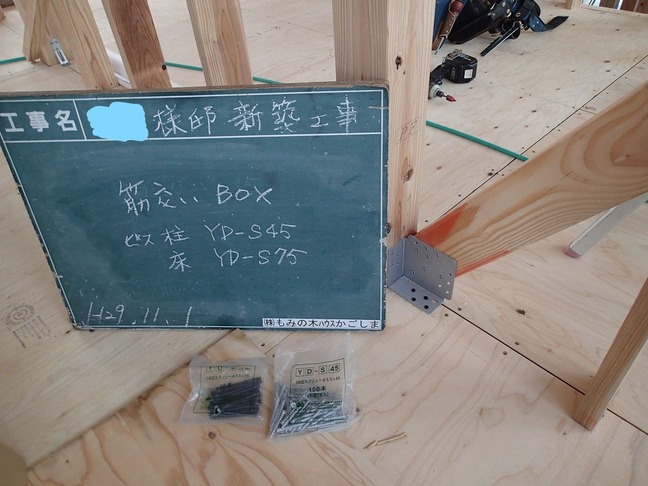 工事名 様邸 新築工事
筋交い BOX
ビス 柱 YD-S45
床 YD-S75
H29.11.1
(株)もみの木ハウスかごしま
YD-S 45
150本